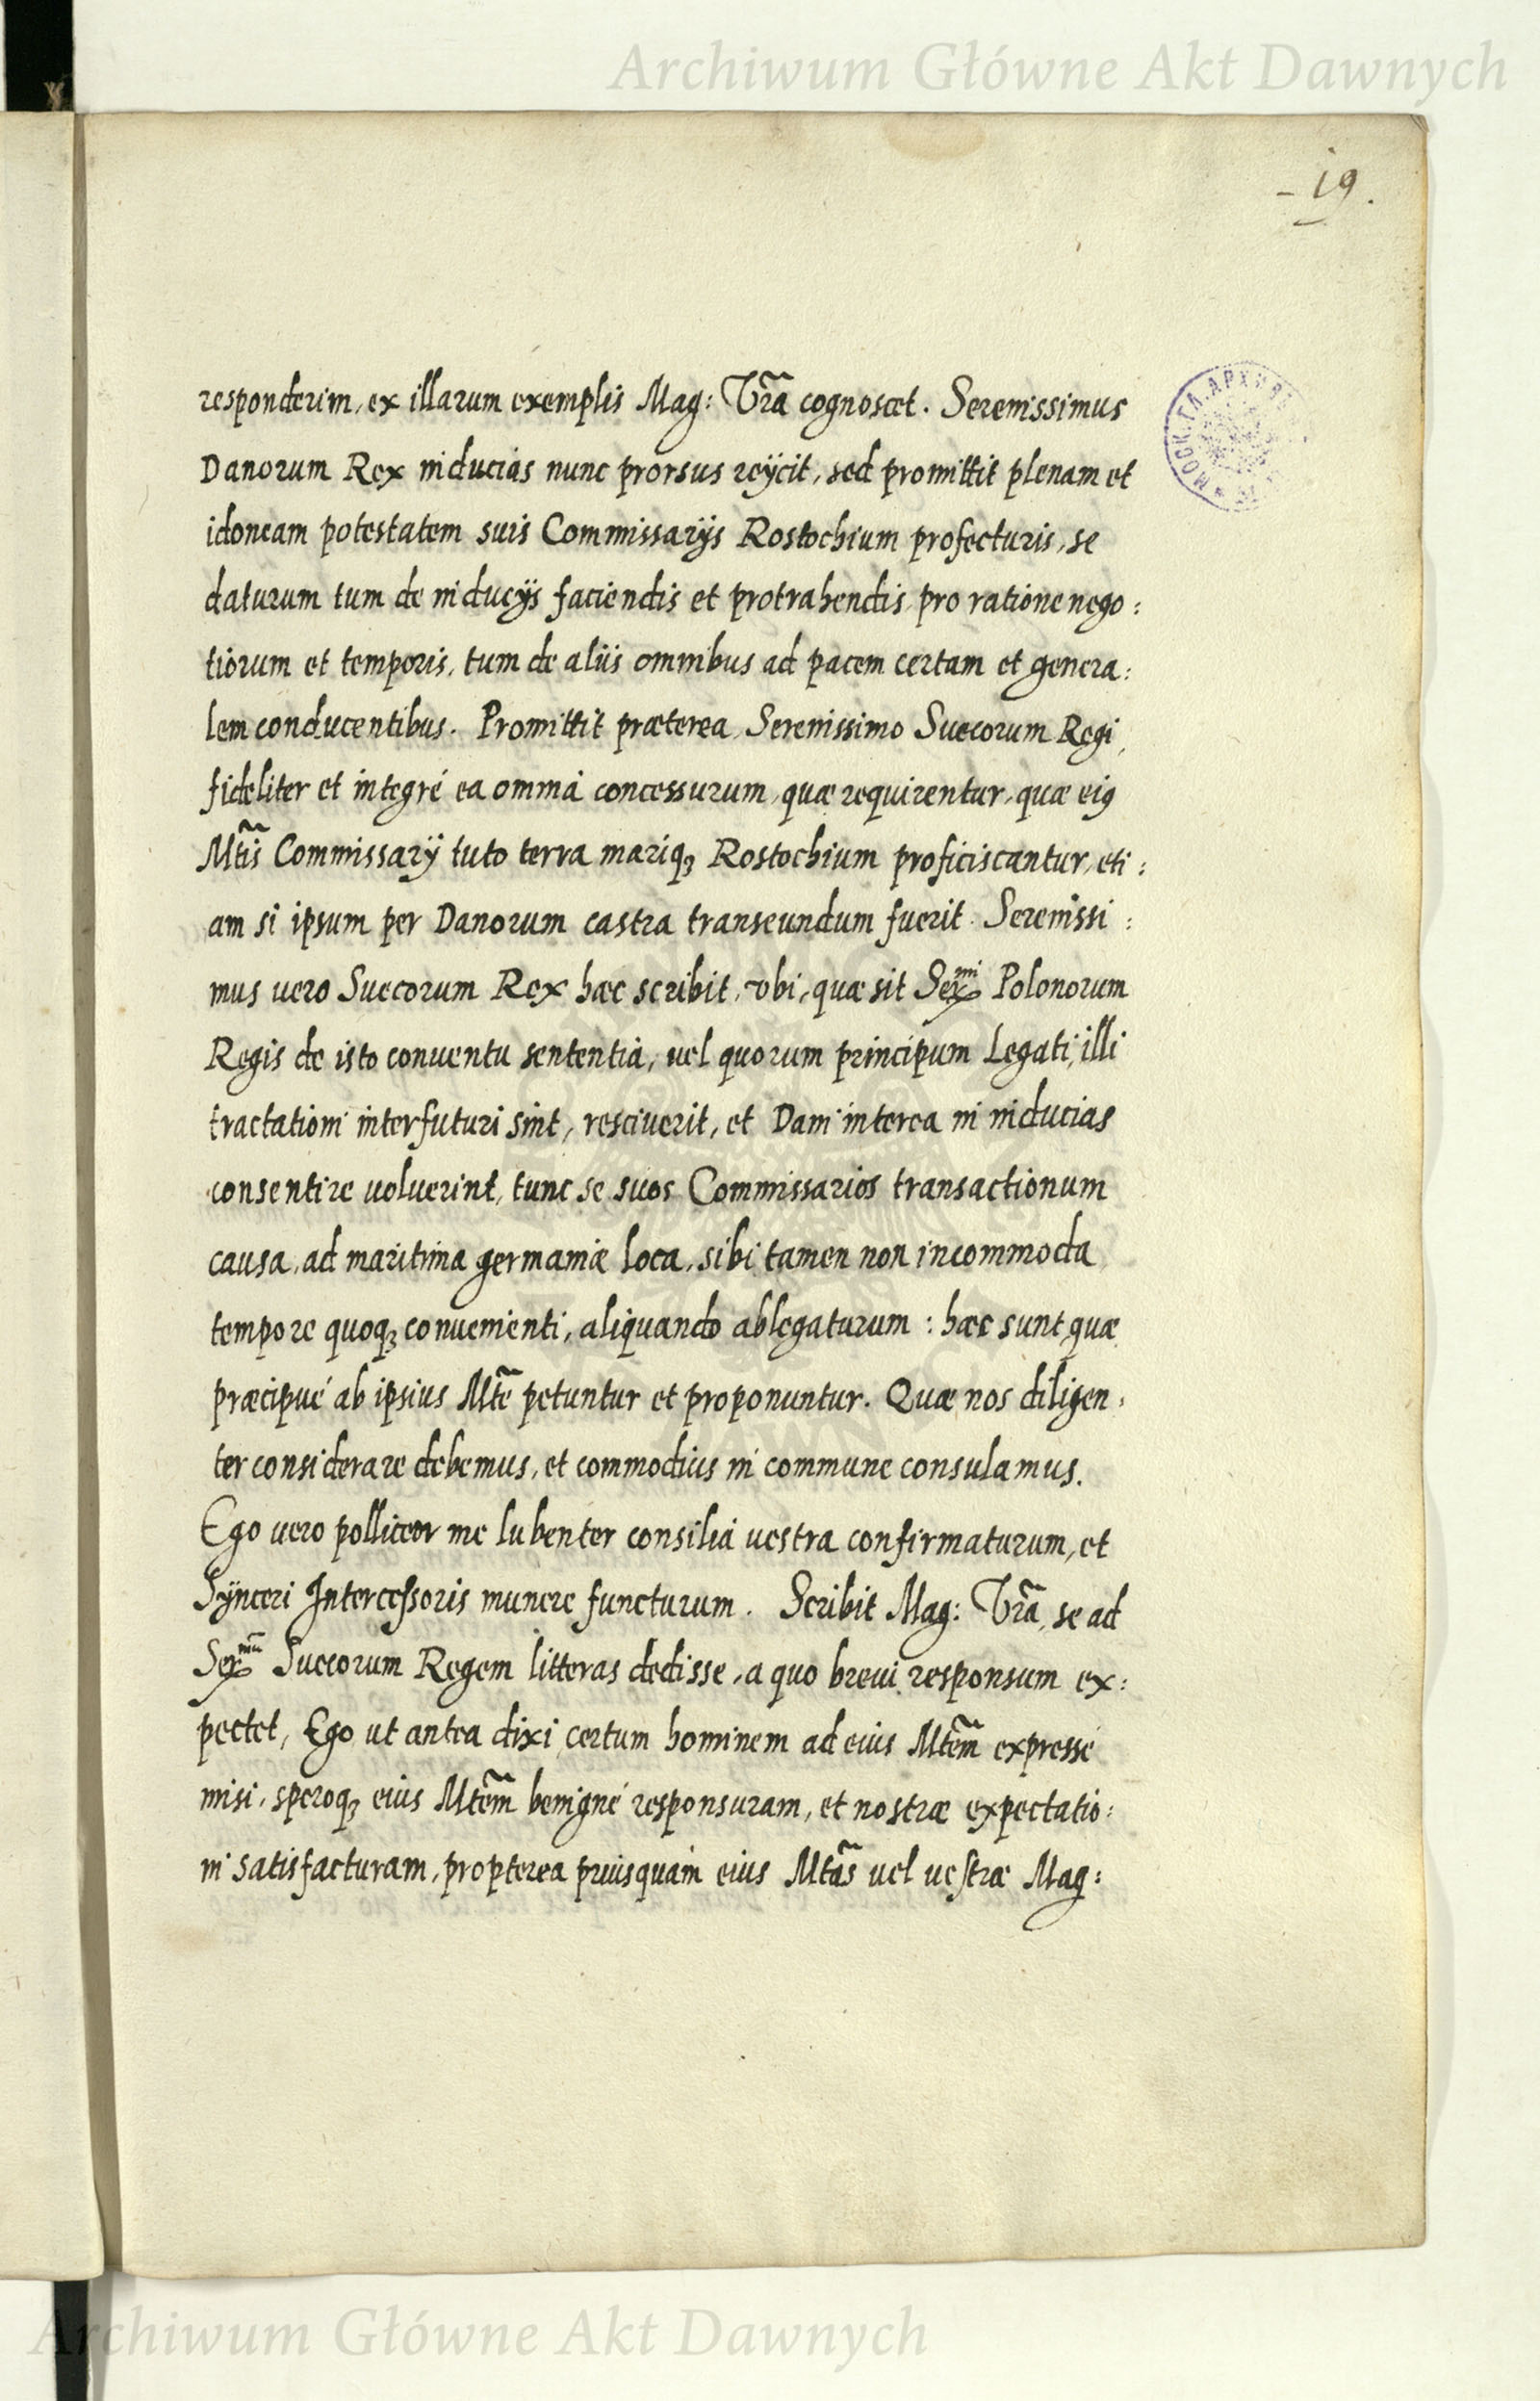 Archiwum Główne Akt Dawnych
- 19.
responderim, ex illarum exemplis Mag: Vr̃a cognoscet. Serenissimus
Danorum Rex inducias nunc prorsus reÿcit, sed promittit plenam et
idoneam potestatem suis Commissarÿs Rostochium profecturis, se
daturum tum de inducÿs faciendis et protrahendis pro ratione nego:
tiorum et temporis, tum de aliis omnibus ad pacem certam et genera:
lem conducentibus. Promittit præterea Serenissimo Suecorum Regi,
fideliter et integré ea omnia concessurum, quæ requirentur, quæ eiꝯ
Mtĩs Commissarÿ tuto terra mariqꝫ Rostochium proficiscantur, eti:
am si ipsum per Danorum castra transeundum fuerit. Serenissi:
mus uero Suecorum Rex hæc scribit, vbi, quæ sit Serᵐⁱ Polonorum
Regis de isto conuentu sententia, uel quorum principum Legati, illi
tractationi interfuturi sint, resciuerit, et Dani interea in inducias
consentire uoluerint, tunc se suos Commissarios transactionum
causa, ad maritima germaniæ loca, sibi tamen non incommoda
tempore quoqꝫ conuenienti, aliquando ablegaturum: hæc sunt quæ
præcipué ab ipsius Mtẽ petuntur et proponuntur. Quæ nos diligen:
ter considerare debemus, et commodius in commune consulamus.
Ego uero polliceor me lubenter consilia uestra confirmaturum, et
Sÿnceri Intercessoris munere functurum. Scribit Mag: Vr̃a, se ad
Serᵐũ Suecorum Regem litteras dedisse, a quo breui responsum ex:
pectet, Ego ut antea dixi certum hominem ad eius Mtẽm expressé
misi, speroqꝫ eius Mtẽm benigné responsuram, et nostræ expectatio:
ni satisfacturam, propterea priusquam eius Mtãs uel uestræ Mag:
Archiwum Główne Akt Dawnych